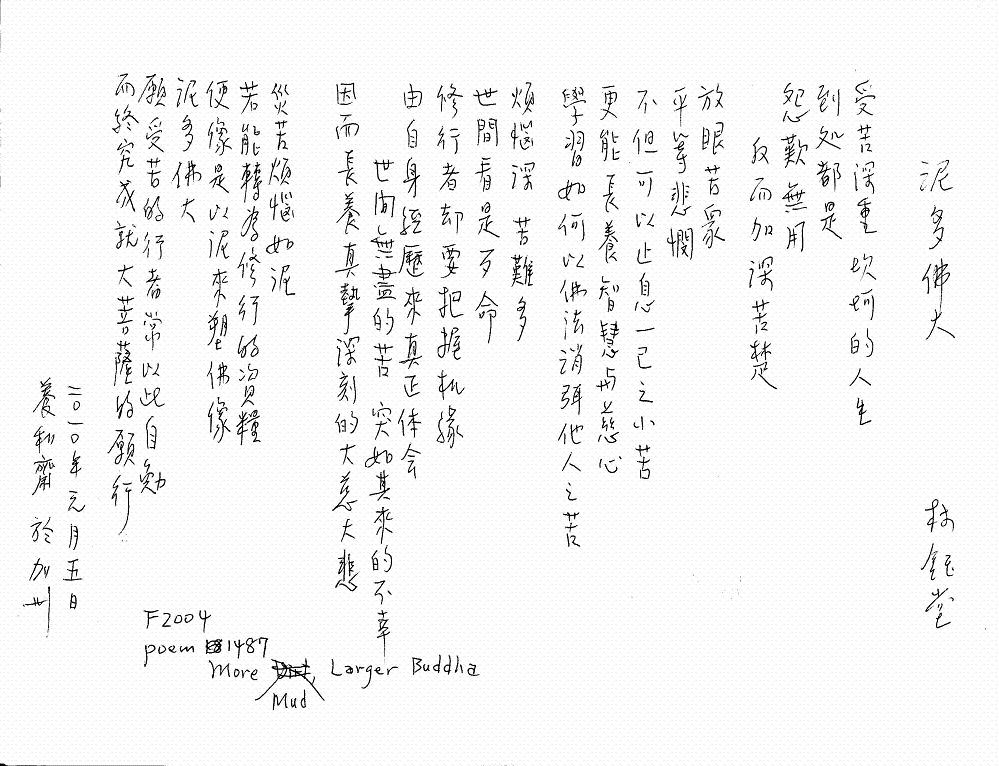 泥多佛大 林鈺堂
受苦深重 坎坷的人生
到处都是
怨歎無用
反而加深苦楚
放眼苦眾
平等悲憫
不但可以止息一己之小苦
更能長養智慧与慈心
學習如何以佛法消弭他人之苦
煩惱深 苦難多
世間看是歹命
修行者却要把握机缘
由自身經歷來真正体会
世间無盡的苦 突如其來的不幸
因而長養真摯深刻的大慈大悲
災苦煩惱如泥
若能轉為修行的資糧
便像是以泥來塑佛像
泥多佛大
願受苦的行者常以此自勉
而終究成就大菩薩的願行
二〇一〇年元月五日
養和齋 於加州
F2004
poem 1487
More Mud, Larger Buddha